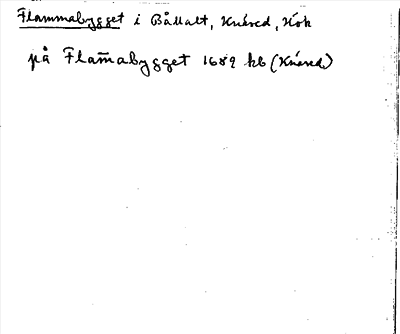 Flammabygget i Bållalt, Knäred, Hök
på Flam̄abygget 1689 kb (Knäred)